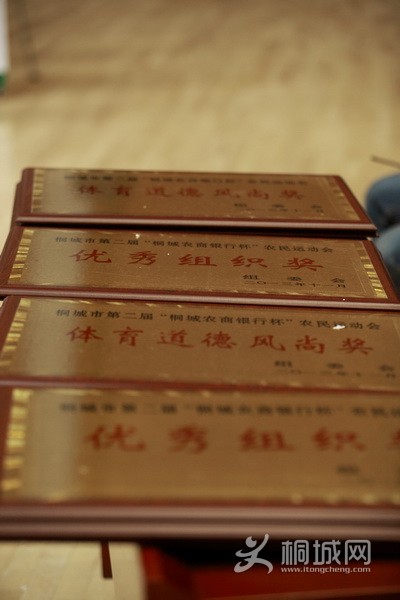 桐城市第二届“桐城农商银行杯”农民运动会
体育道德风尚奖
桐城市第二届“桐城农商银行杯”农民运动会
优秀组织奖
组委会
二〇一三年十一月
桐城市第二届“桐城农商银行杯”农民运动会
体育道德风尚奖
组委会
桐城市第二届“桐城农商银行杯”农民
优秀组织奖
桐城网
www.itongcheng.com